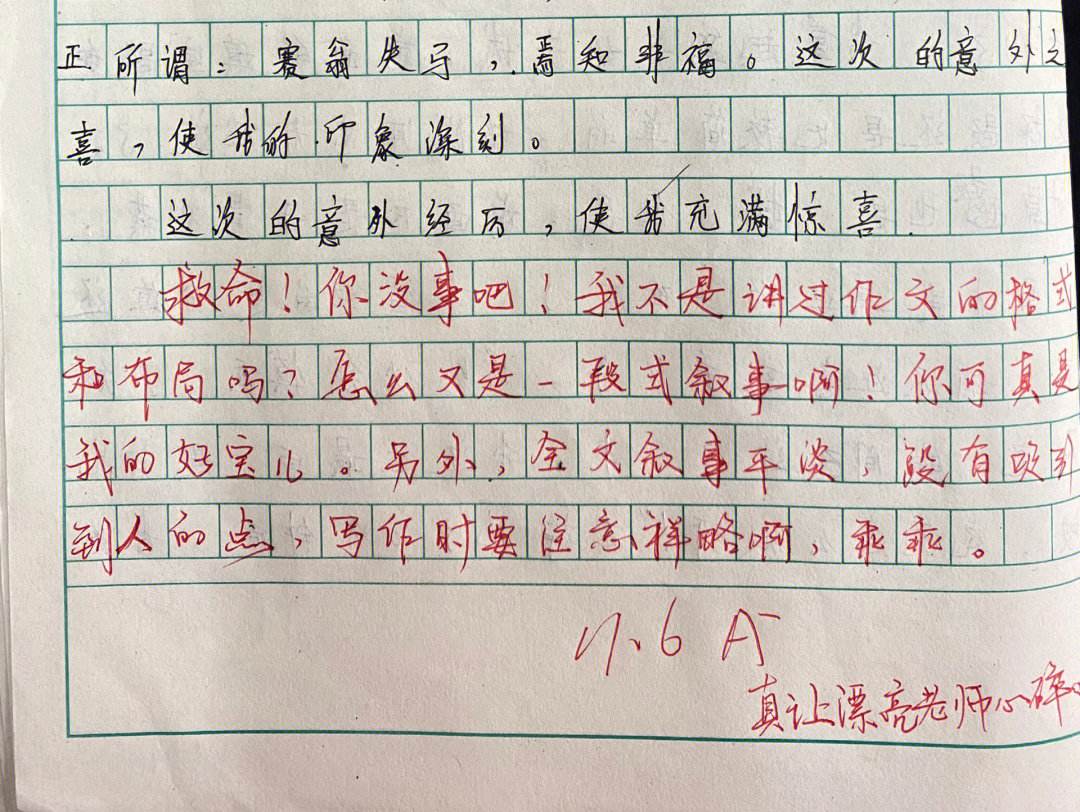 正所谓：赛翁失马，焉知非福。这次的意外之
喜，使我的印象深刻。
这次的意外经历，使我充满惊喜.
救命！你没事吧！我不是讲过作文的格式
和布局吗？怎么又是一段式叙事啊！你可真是
我的好宝儿。另外，全文叙事平淡，没有吸引
到人的点，写作时要注意祥略啊，乖乖。
17.6 A-
真让漂亮老师心碎。